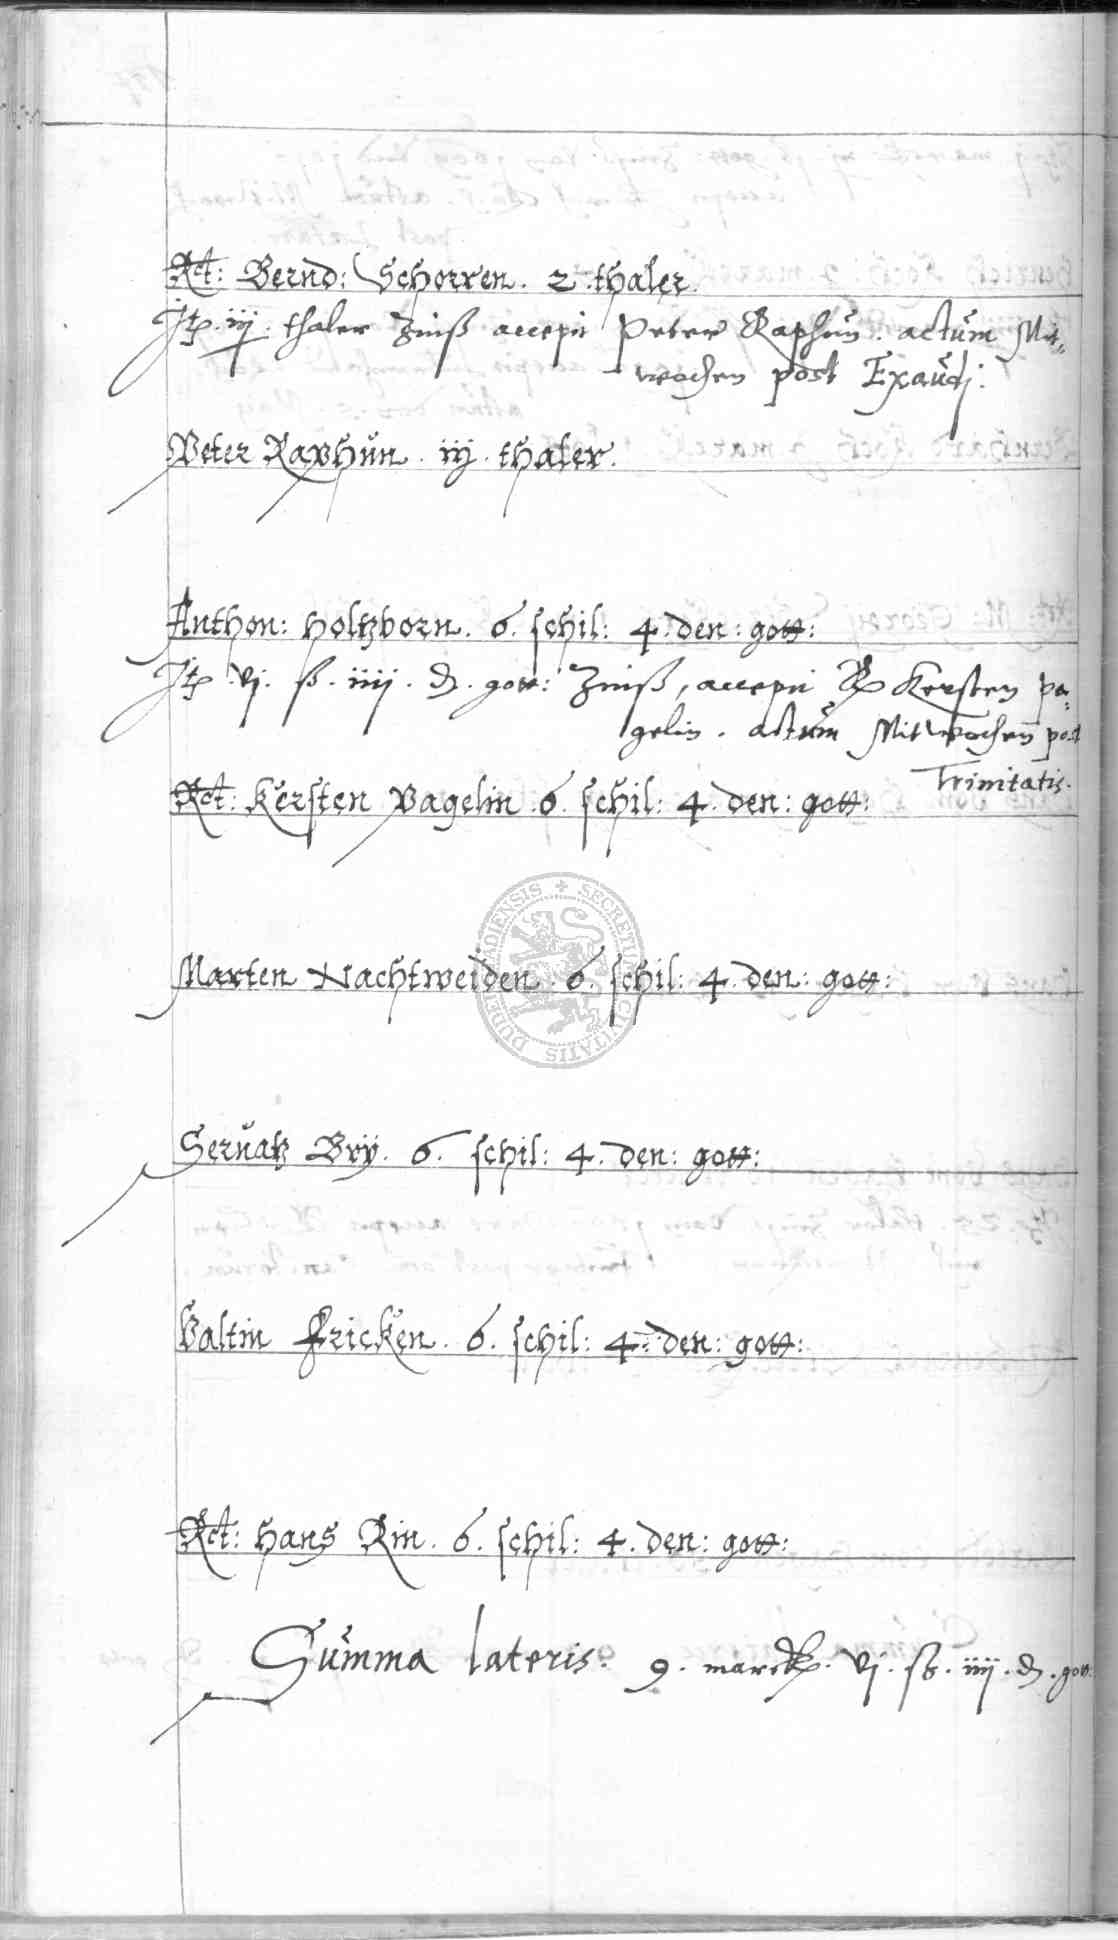 Rct: Bernd: Schorren. 2. thaler.
Itp. iij. thaler Zinß accepi Peter Raphun. actum Mit,,
wochen post Exaudj:
Peter Raphun. iij. thaler.
Anthon: Holtzborn. 6. schil: 4. den: gott:
Itp. vj. ß. iiij. d. gott: Zinß, accepi Kersten pa,,
gelin. actum Mitwochen post
Trinitatis.
Rct: Kersten Pagelin 6. schil: 4. den: gott:
Marten Nachtweiden. 6. schil: 4. den: gott:
DUDE ADIENSIS + SECRETU CIVITATIS
Seruatz Bry. 6. schil: 4. den: gott:
Valtin Fricken. 6. schil: 4. den: gott:
Rct: Hans Rin. 6. schil: 4. den: gott:
Summa lateris: 9. marck. vj. ß. iiij. d. gott: